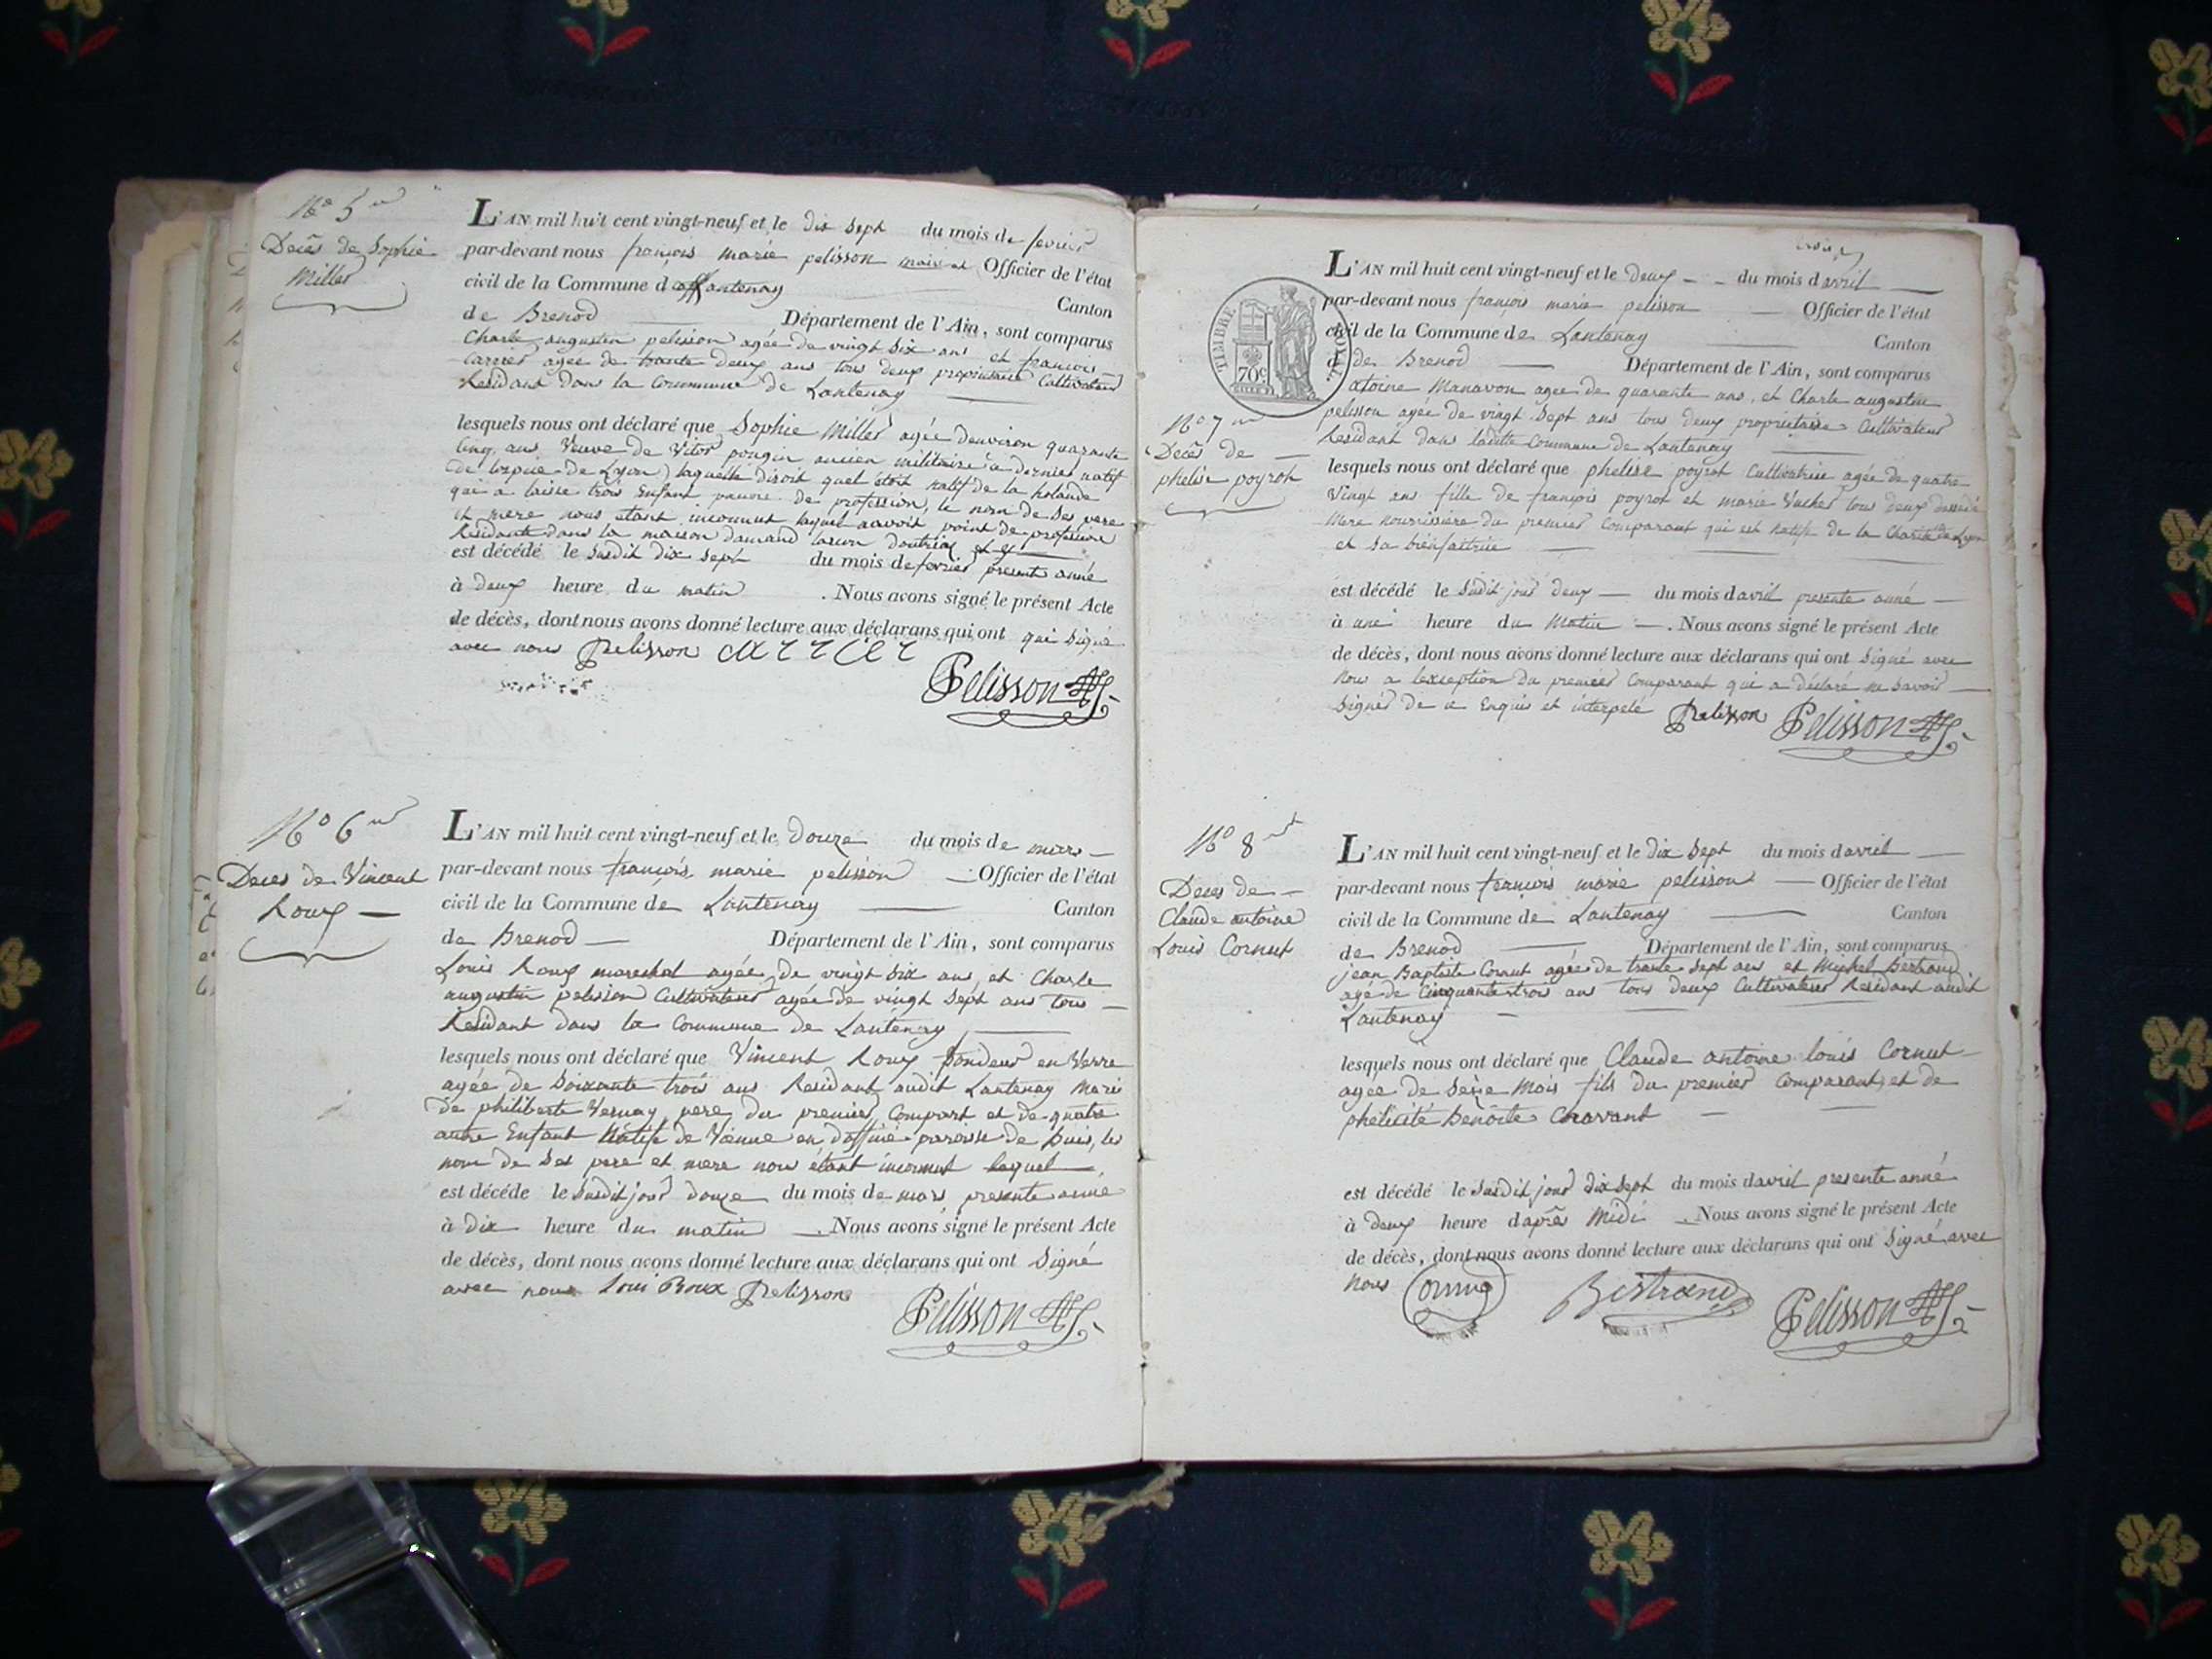 N° 5
Decès de Sophie
Miller
L'AN mil huit cent vingt-neuf et le dix sept du mois de fevrier
par-devant nous françois marie pelisson maire et Officier de l'état
civil de la Commune de Lantenay Canton
de Brenod Département de l'Ain, sont comparus
Charle augustin pelisson agée de vingt six ans et françois
Carrier agée de trante deux ans tous deux propriétaire Cultivateur
Residant dans la Commune de Lantenay
lesquels nous ont déclaré que Sophie Miller agée denviron quarante
Cinq ans Veuve de Vitor pougin ancien militaire a dernier natif
de Lyon) laquelle disoit quel étoit natif de la holande
qui a laisse trois Enfant pauvre de profession, le nom de ses pere
et mere nous étant inconnut laquel navoit point de profession
Residante dans la maison damand
est décédé le susdit dix sept du mois de fevrier presente année
à deux heure du matin . Nous avons signé le présent Acte
de décès, dont nous avons donné lecture aux déclarans qui ont qui signé
avec nous Pelisson carrier
Pelisson
N° 6
Deces de Vincent
Roux
L'AN mil huit cent vingt-neuf et le douze du mois de mars
par-devant nous françois marie pelisson Officier de l'état
civil de la Commune de Lantenay Canton
de Brenod Département de l'Ain, sont comparus
Louis Roux marechal agée de vingt six ans et Charle
augustin pelisson Cultivateur agée de vingt sept ans tous
Residant dans la Commune de Lantenay
lesquels nous ont déclaré que Vincent Roux fondeur en Verre
agée de soixante trois ans Residant audit Lantenay Marié
de philiberte Vernay pere du premier Comparant et de quatre
autre Enfant Natife de Vienne en doffiné paroisse de buis, les
nom de ses pere et mere nous étant inconnut laquel
est décédé le susdit jour douze du mois de mars presente année
à dix heure du matin . Nous avons signé le présent Acte
de décès, dont nous avons donné lecture aux déclarans qui ont signé
avec nous Loui Roux Pelisson
Pelisson
TIMBRE ROYAL
70c
N° 7
Decès de
phelise poyrot
L'AN mil huit cent vingt-neuf et le deux du mois davril
par-devant nous françois marie pelisson Officier de l'état
civil de la Commune de Lantenay Canton
de Brenod Département de l'Ain, sont comparus
atoine Manavon agee de quarante ans, et Charle augustin
pelisson agée de vingt sept ans tous deux propriétaire Cultivateur
Residant dans laditte Commune de Lantenay
lesquels nous ont déclaré que phelise poyrot Cultivatrice agée de quatre
Vingt ans fille de françois poyrot et marie Vuches tous deux dessedé
Mere nourissiere du premier Comparant qui est natife de la Charité de Lyon
et sa bienfaitrice
est décédé le susdit jour deux du mois davril presente année
à une heure du Matin . Nous avons signé le présent Acte
de décès, dont nous avons donné lecture aux déclarans qui ont signé avec
nous a lexception du premier Comparant qui a déclaré ne savoir
signer de ce Enquis et interpelé Pelisson Pelisson
N° 8
Deces de
Claude antoine
Louis Cornut
L'AN mil huit cent vingt-neuf et le dix sept du mois davril
par-devant nous françois marie pelisson Officier de l'état
civil de la Commune de Lantenay Canton
de Brenod Département de l'Ain, sont comparus
jean Baptiste Cornut agée de trante sept ans et Michel Bertrand
agé de Cinquante trois ans tous deux Cultivateur Residant audit
Lantenay
lesquels nous ont déclaré que Claude antoine louis Cornut
agée de seize Mois fils du premier Comparant, et de
phélicité benoite Chavant
est décédé le susdit jour dix sept du mois davril presente année
à deux heure daprès Midi . Nous avons signé le présent Acte
de décès, dont nous avons donné lecture aux déclarans qui ont signé avec
nous Bertrand Pelisson